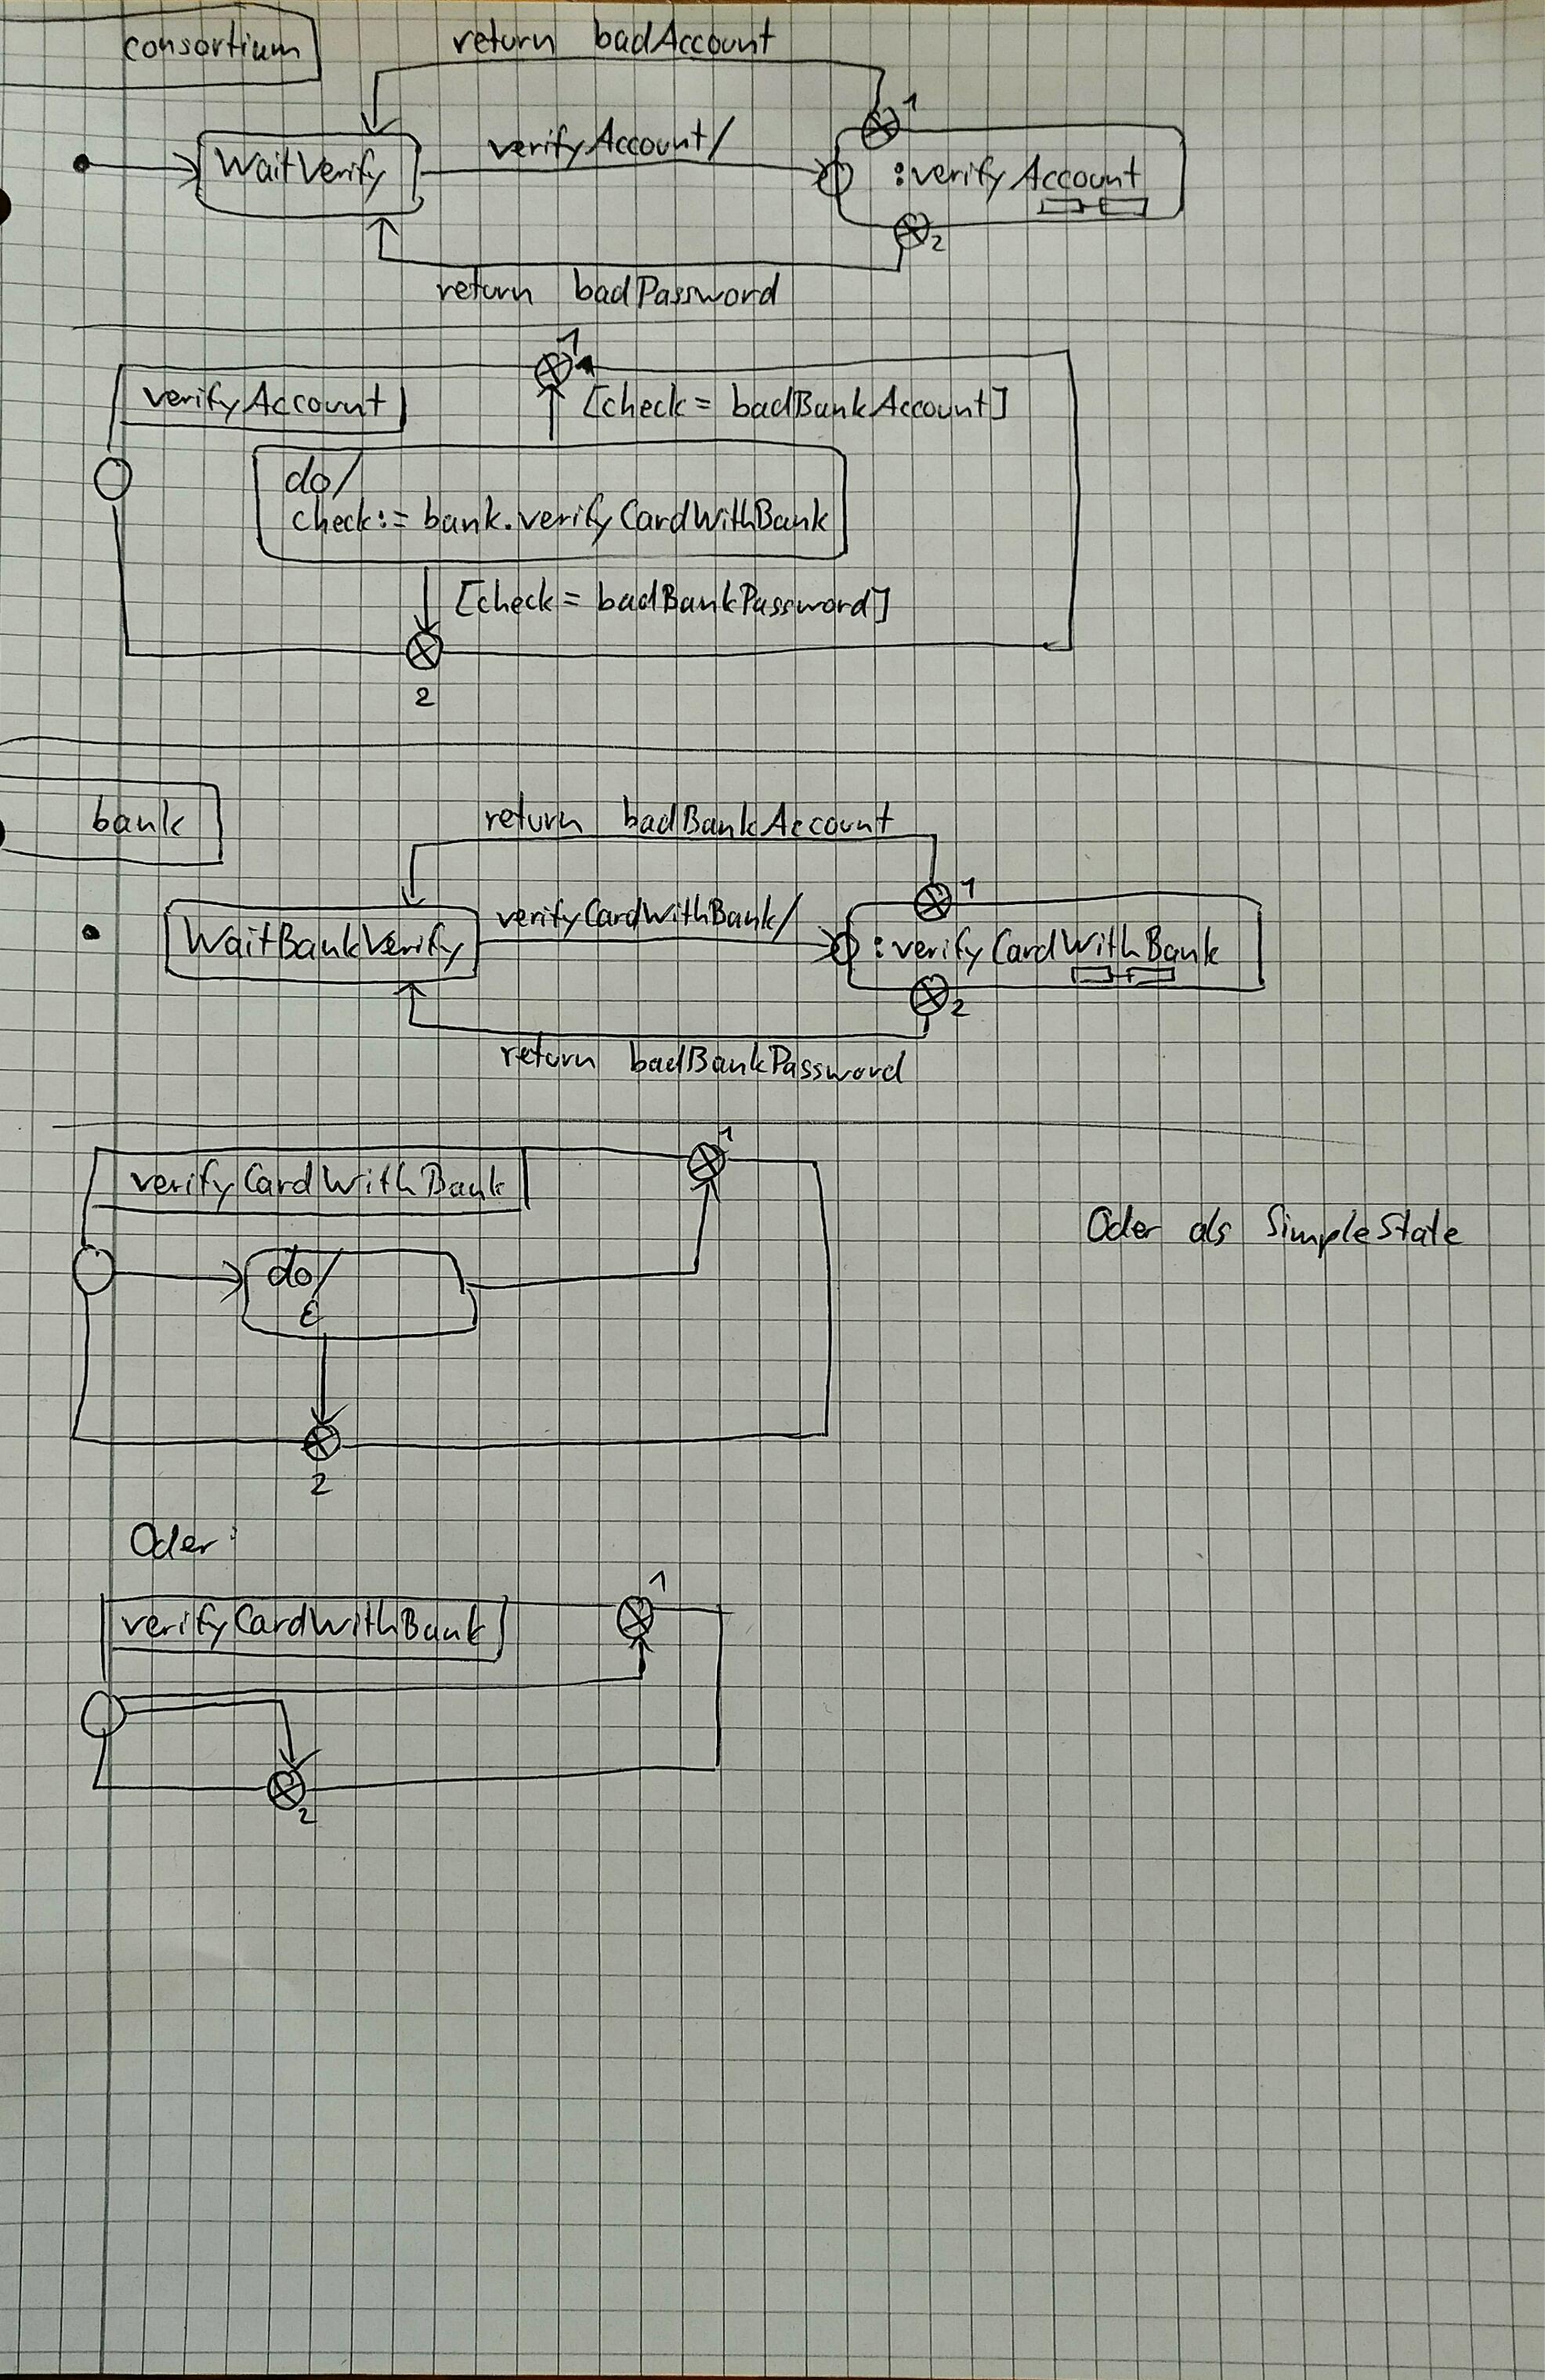 consortium
return badAccount
1
WaitVerify
verifyAccount/
:verifyAccount
2
return badPassword
1
verifyAccount
[check = badBankAccount]
do/
check := bank.verifyCardWithBank
[check = badBankPassword]
2
bank
return badBankAccount
1
WaitBankVerify
verifyCardWithBank/
:verifyCardWithBank
2
return badBankPassword
1
verifyCardWithBank
Oder als SimpleState
do/
ε
2
Oder:
1
verifyCardWithBank
2